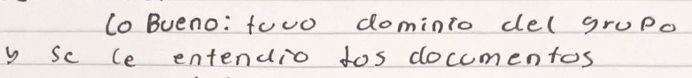 lo Bueno: tuvo dominio del grupo
y se le entendio los documentos